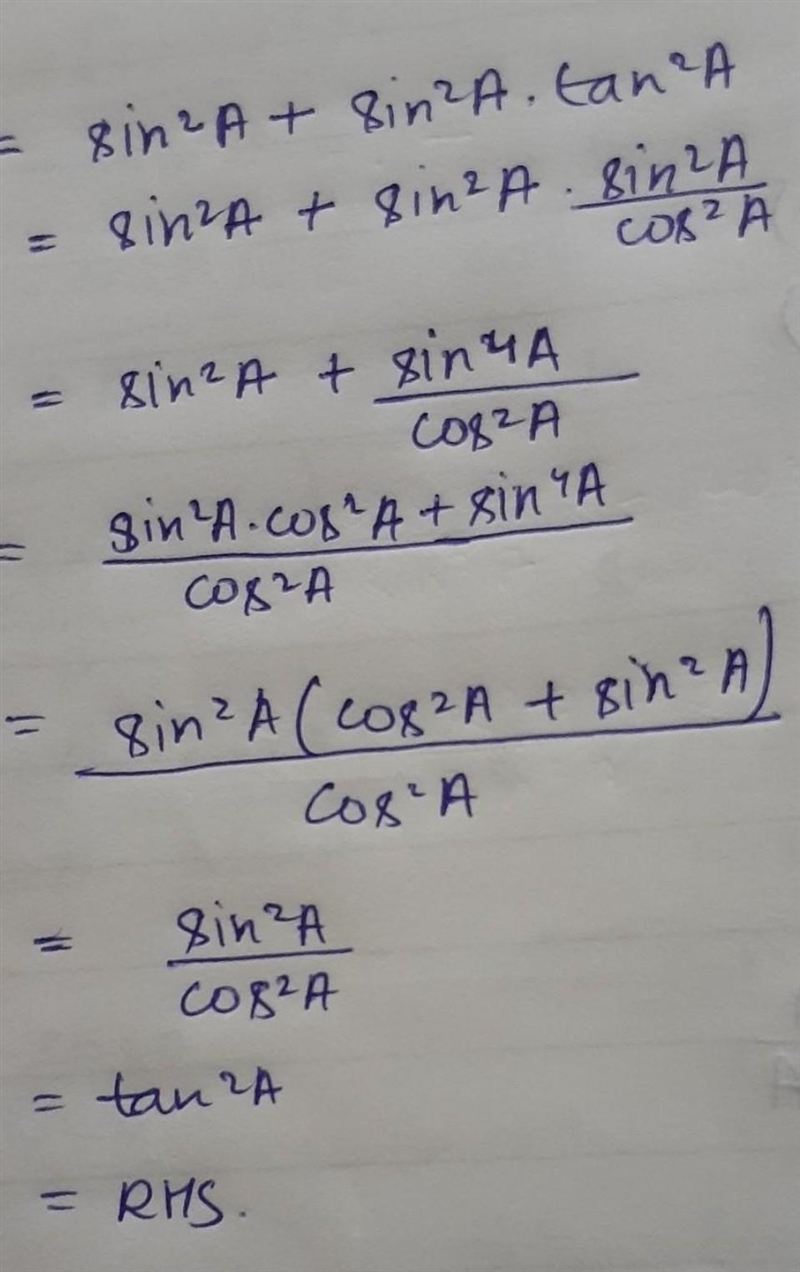 = sin²A + sin²A . tan²A
= sin²A + sin²A . sin²A / cos²A
= sin²A + sin⁴A / cos²A
= sin²A . cos²A + sin⁴A / cos²A
= sin²A (cos²A + sin²A) / cos²A
= sin²A / cos²A
= tan²A
= RHS.